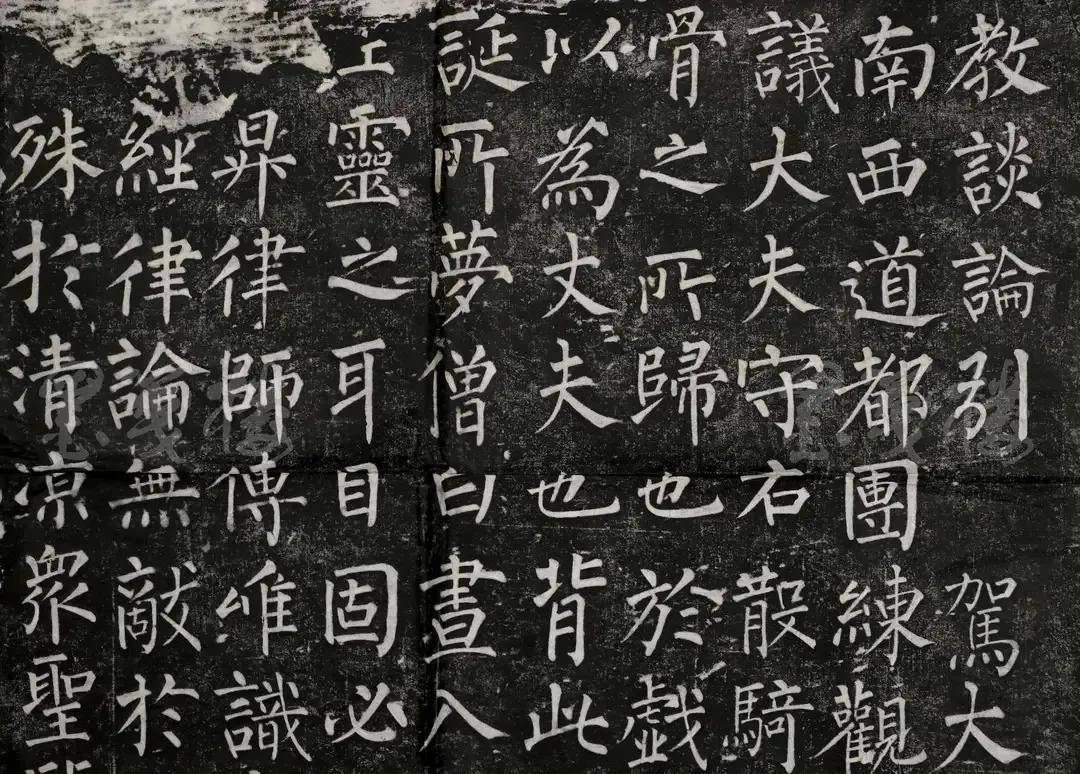 教談論引駕大
南西道都團練觀
議大夫守右散騎
骨之所歸也於戲
以為丈夫也背此
誕所夢僧白晝入
靈之耳目固必
昇律師傳唯識
經律論無敵於
殊於清涼眾聖